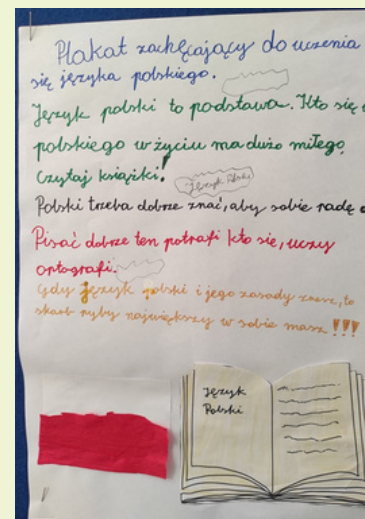 Plakat zachęcający do uczenia
się języka polskiego.
Język polski to podstawa. Kto się
polskiego w życiu ma dużo miłego.
Czytaj książki!
Język Polski
Polski trzeba dobrze znać, aby sobie radę
Pisać dobrze ten potrafi kto się, uczy
ortografi.
Gdy język polski i jego zasady znasz, to
skarb największy w sobie masz !!!
Język
Polski